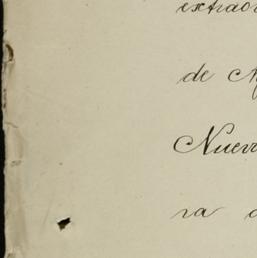 extraor
de
Nuev
ra